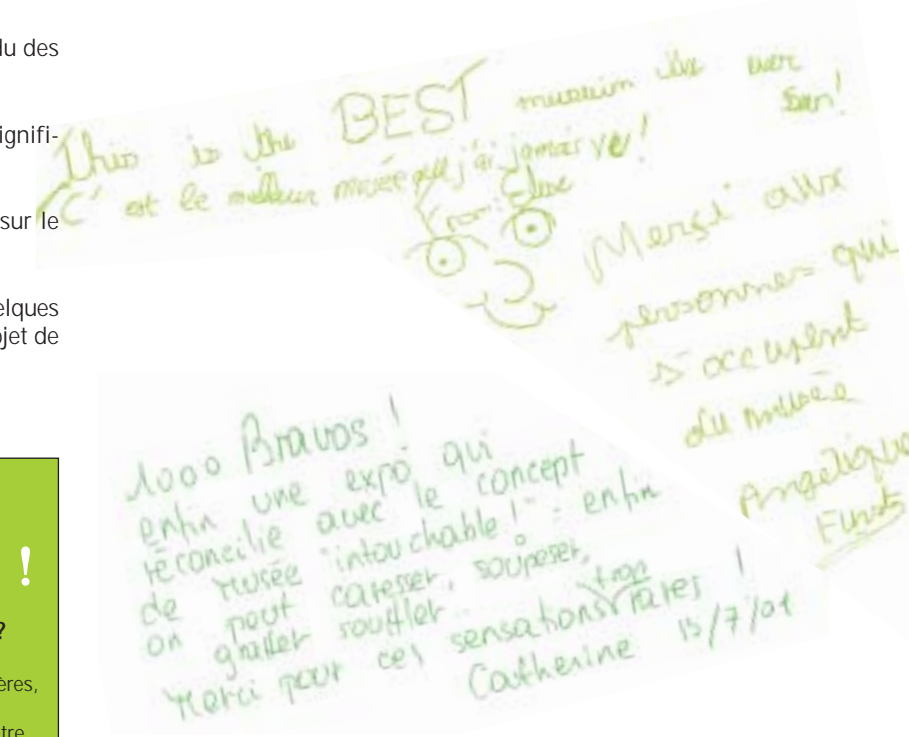 du des
ignifi-
sur le
elques
jet de
!
?
ères,
tre
This is the BEST museum I've ever
seen!
C'est le meilleur musée que j'ai jamais vu!
From: Elise
Merçi aux
personnes qui
s'occupent
du musée
Angelique
1000 Bravos !
enfin une expo qui
réconcilie avec le concept
de musée "intouchable!" : enfin
on peut caresser, soupeser,
gratter souffler..
Merci pour ces sensations trop rares !
Catherine 15/7/01